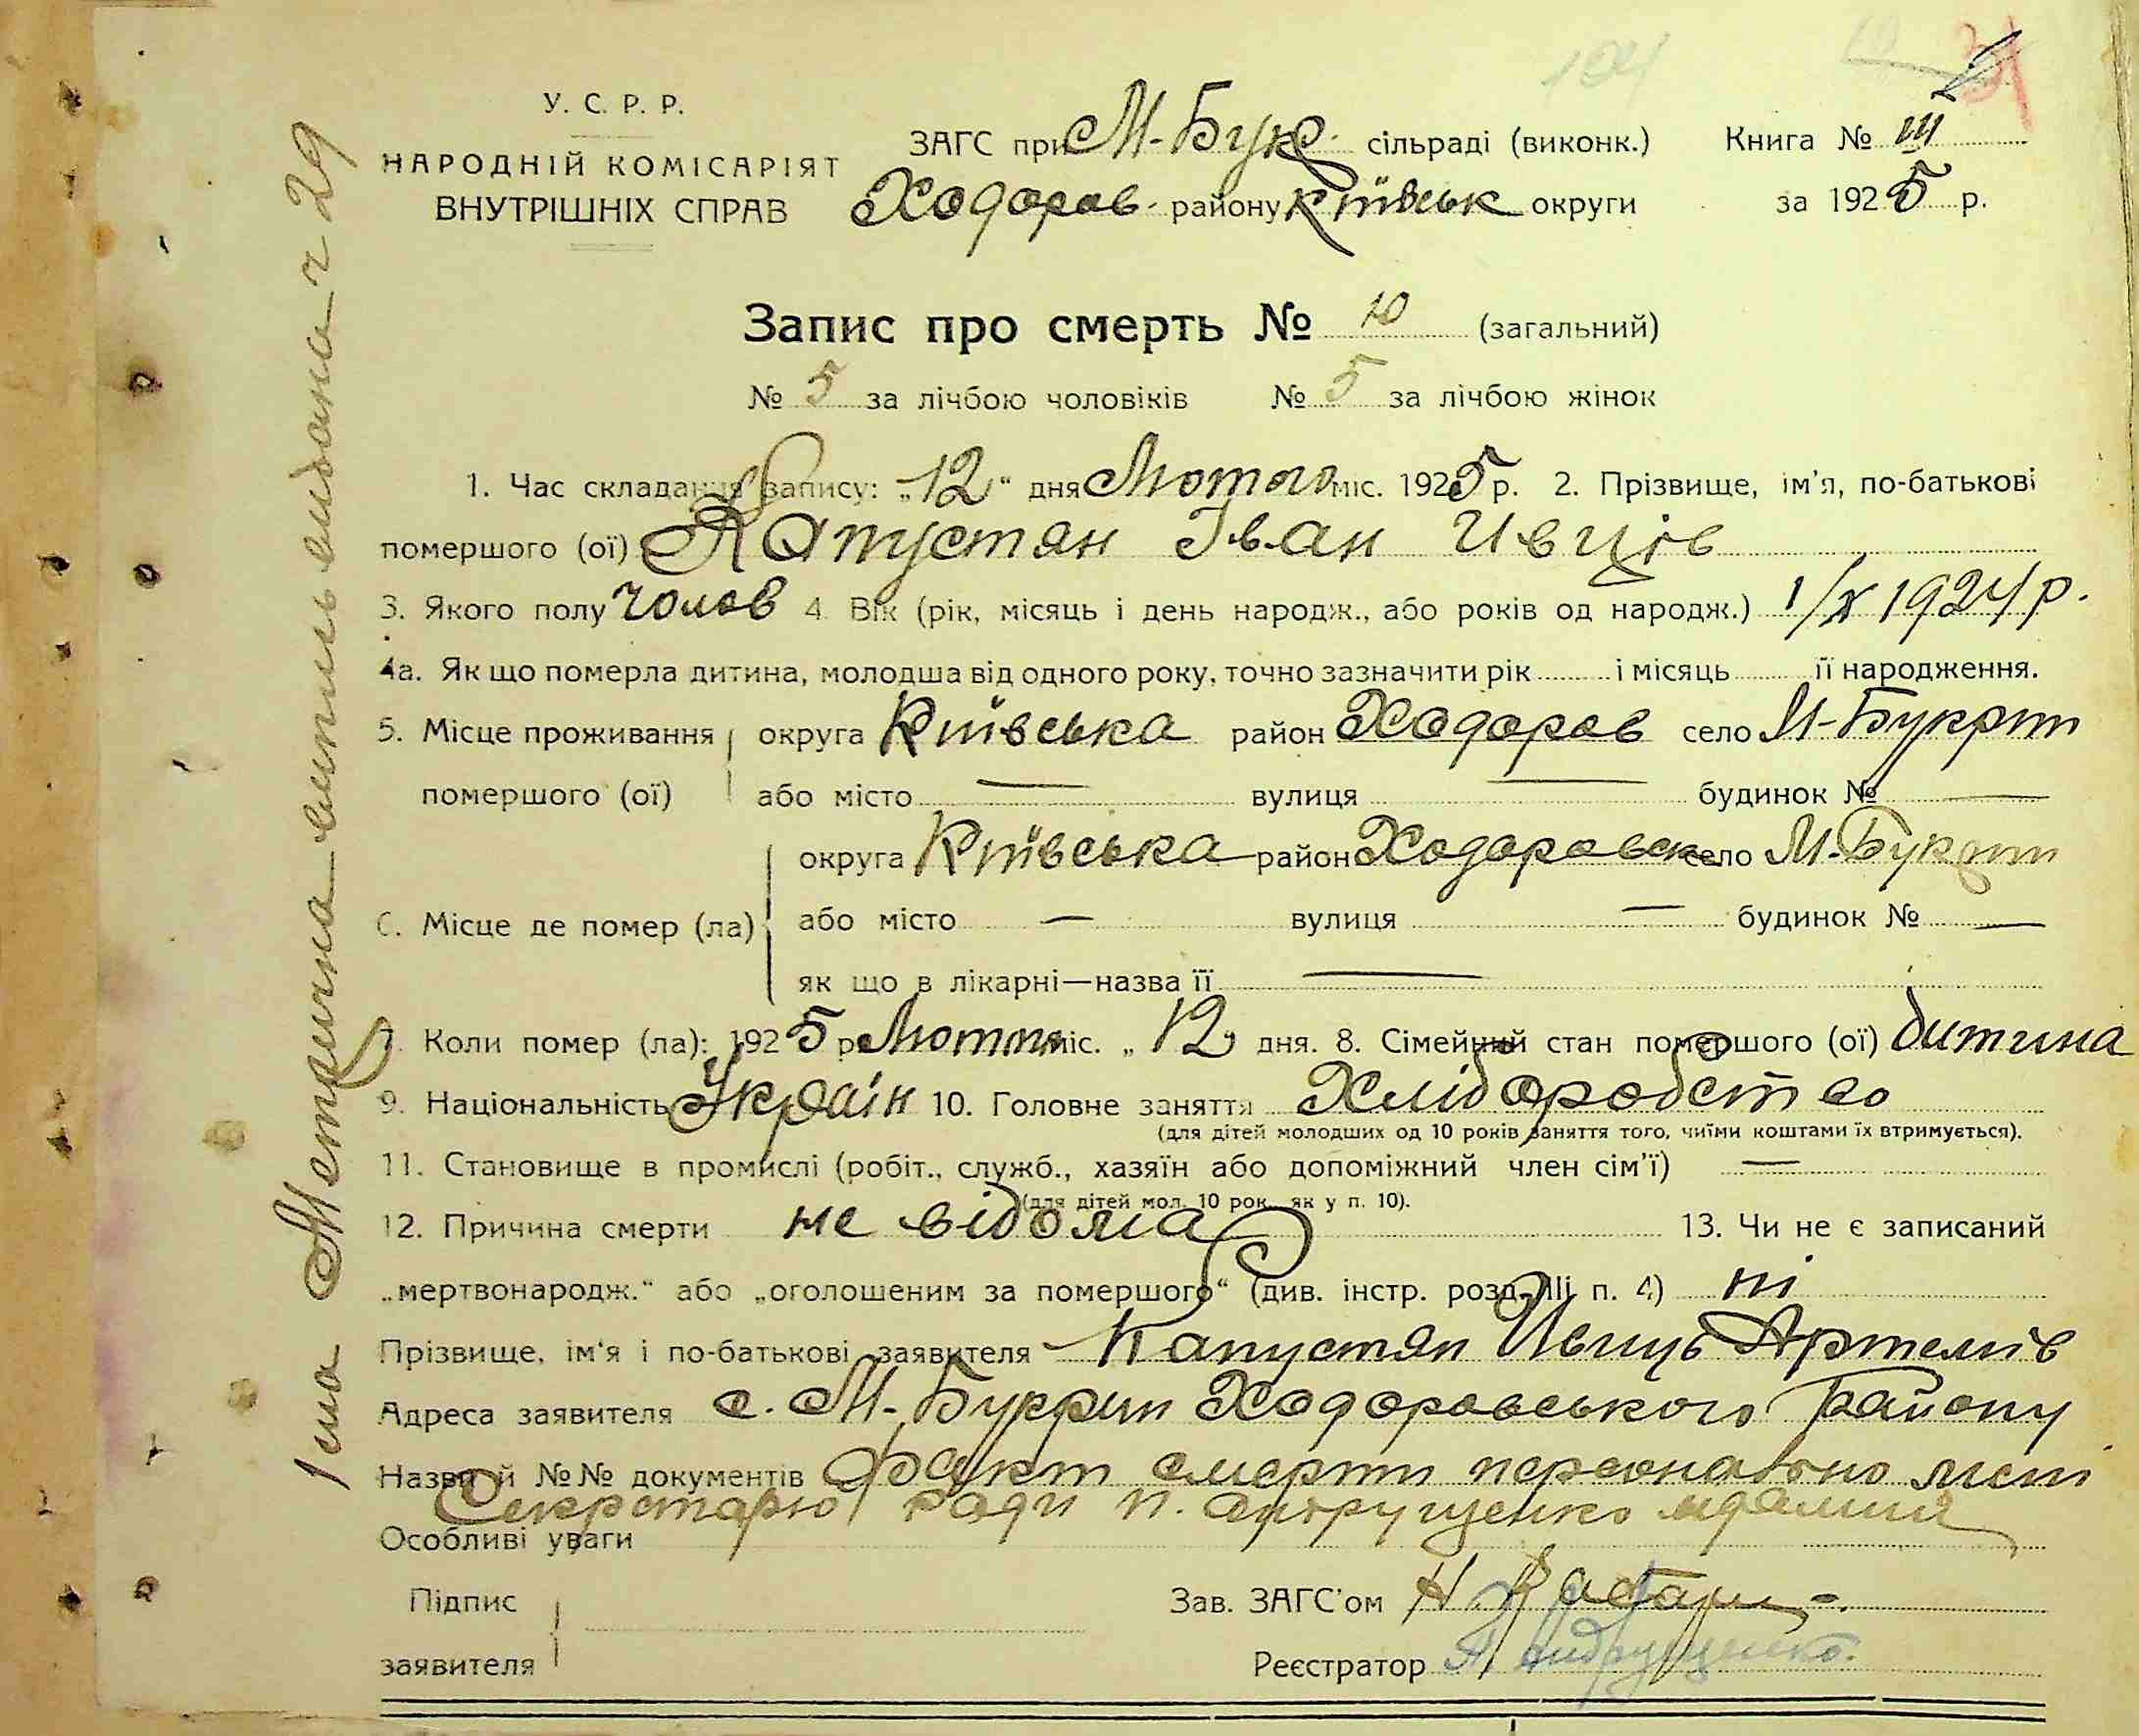 У. С. Р. Р.
НАРОДНІЙ КОМІСАРІЯТ
ВНУТРІШНІХ СПРАВ
ЗАГС при М-Букр. сільраді (виконк.) Книга № III
Ходоров. району Київськ округи за 1925 р.
Запис про смерть № 10 (загальний)
№ 5 за лічбою чоловіків № 5 за лічбою жінок
1. Час складання запису: „12“ дня Лютого міс. 1925 р. 2. Прізвище, ім'я, по-батькові
помершого (ої) Капустян Іван Ивців
3. Якого полу чолов 4. Вік (рік, місяць і день народж., або років од народж.) 1/X 1924 р.
4а. Як що померла дитина, молодша від одного року, точно зазначити рік і місяць її народження.
5. Місце проживання округа Київська район Ходоров село М-Букрин
помершого (ої) або місто — вулиця — будинок № —
округа Київська район Ходоровск село М-Букрин
6. Місце де помер (ла) або місто — вулиця — будинок № —
як що в лікарні—назва її —
7. Коли помер (ла): 1925 р Лютого міс. „12 дня. 8. Сімейний стан помершого (ої) дитина
9. Національність Украін 10. Головне заняття Хліборобство
(для дітей молодших од 10 років заняття того, чиїми коштами їх втримується).
11. Становище в промислі (робіт., служб., хазяїн або допоміжний член сім'ї) —
(для дітей мол. 10 рок. як у п. 10).
12. Причина смерти не відома 13. Чи не є записаний
„мертвонародж.“ або „оголошеним за помершого“ (див. інстр. розд. III п. 4) ні
Прізвище, ім'я і по-батькові заявителя Капустян Ивць Артемів
Адреса заявителя с. М-Букрин Ходоровського Району
Назва й №№ документів Факт смерти персонально
Секретарю Ради
Особливі уваги
Підпис
заявителя
Зав. ЗАГС'ом
Реєстратор П. Андрущенко.
1 ша Метрична випись видана ч 29